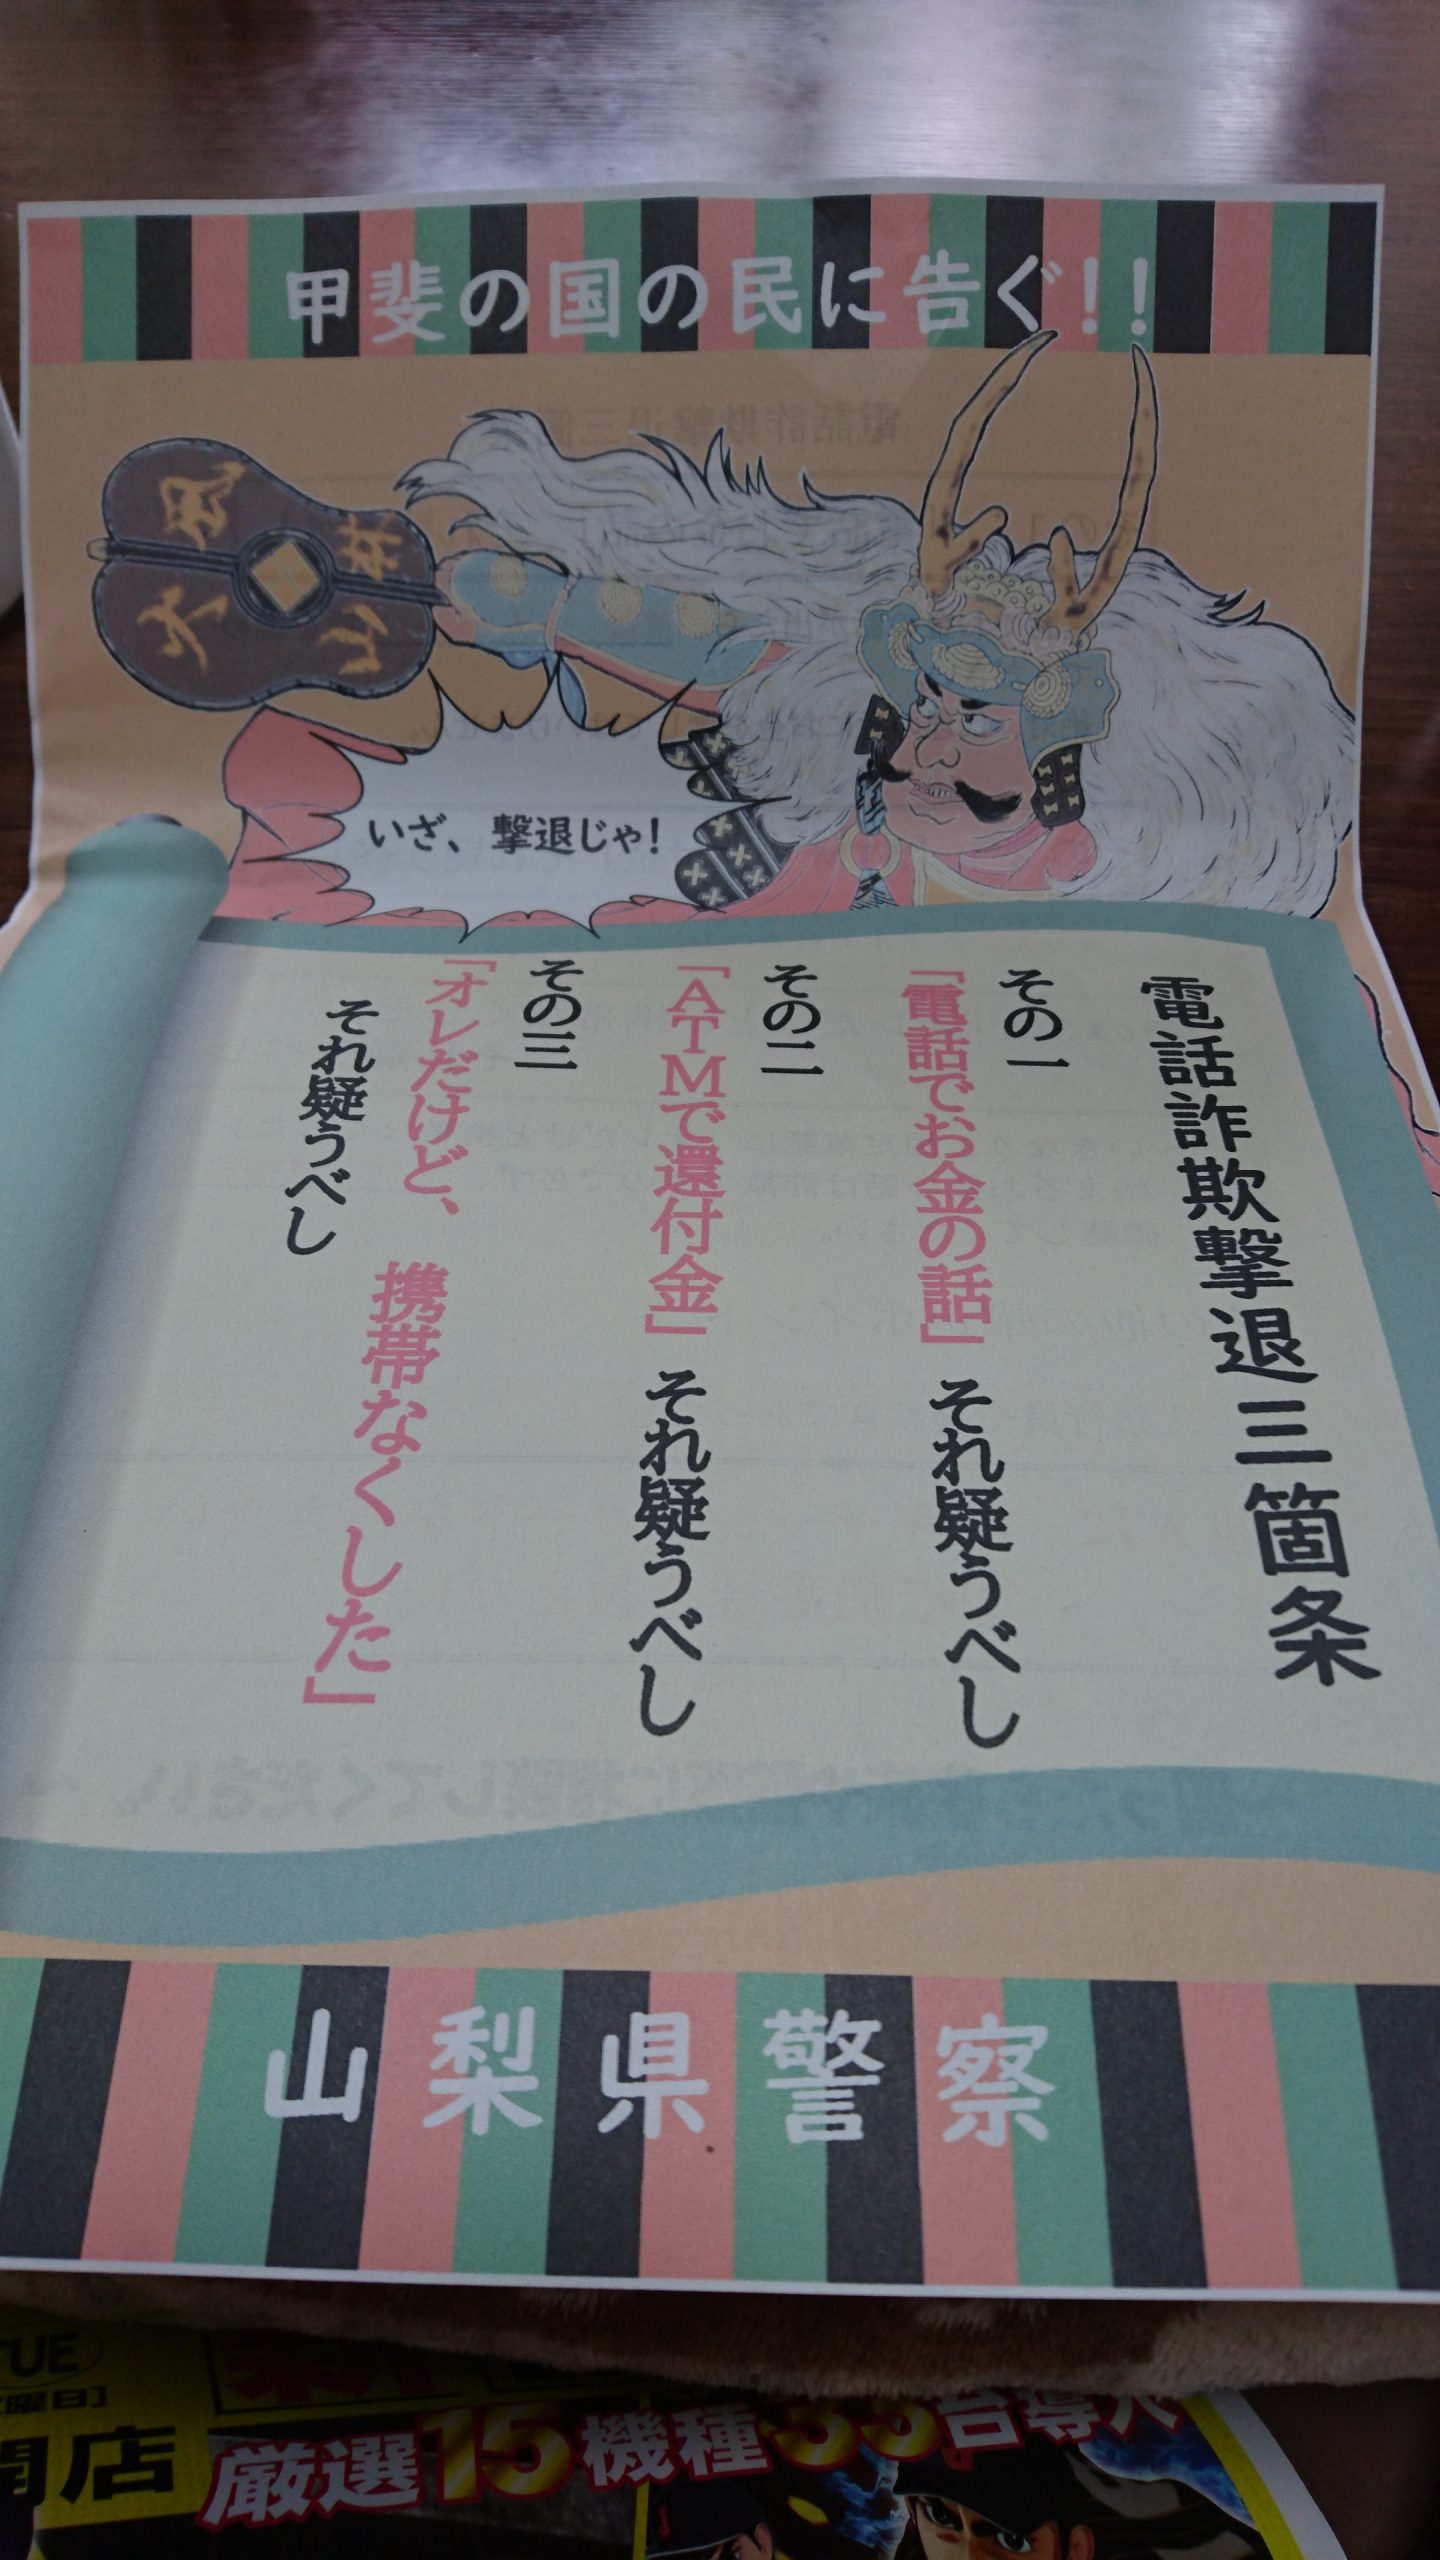 甲斐の国の民に告ぐ!!
風
林
火
山
いざ、撃退じゃ!
電話詐欺撃退三箇条
その一
「電話でお金の話」それ疑うべし
その二
「ATMで還付金」それ疑うべし
その三
「オレだけど、携帯なくした」
それ疑うべし
山梨県警察
TUE
曜日]
開店
厳選15機種35台導入